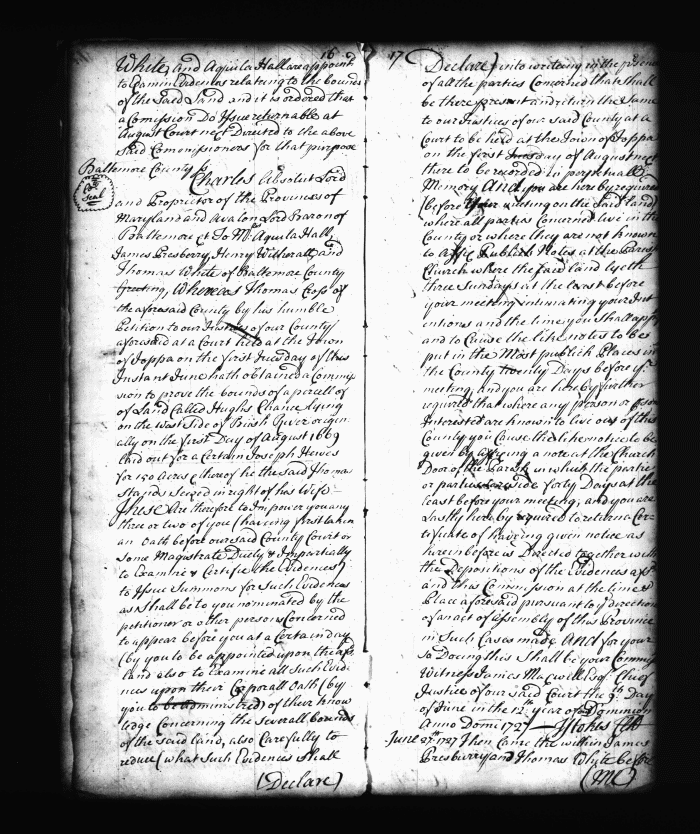 16
White, and Aquila Hall are appoint
to Examin Evidences relateing to the bounds
of the Said Land and it is ordered that
a Comission Do Issue returnable at
August Court next Directed to the above
said Comissioners for that purpose
Baltemore County Ss
Charles Absolut Lord
seal
and Proprietor of the Provinces of
Maryland and Avalon Lord Baron of
Baltemore &c To Mr Aquila Hall,
James Presberry, Henry Witherall and
Thomas White of Baltemore County
Greeting, Whereas Thomas Cross of
the aforesaid County by his humble
Petition to our Justices of our County
aforesaid at a Court held at the Town
of Joppa on the first Tuesday of this
Instant June hath obtained a Commis
sion to prove the bounds of a parcell of
of Land Called Hughs Chance lying
on the west Side of Bush River origin
ally on the first Day of August 1669
laid out for a Certain Joseph Hewes
for 150 Acres thereof he the said Thomas
Stands Seized in right of his Wife
These Are therefore to Impower you any
three or two of you (having first taken
an Oath before our said County Court or
some Magistrate Duely & Impartially
to Examine & Certifie the Evidences)
to Issue Summons for such Evidences
as Shall be to you nominated by the
petitioner or other persons Concerned
to appear before you at a Certain day
(by you to be appointed upon the afsd
land also to Examine all such Evide
nces upon their Corporall Oath (by
you to be administred) of their know
ledge Concerning the severall bounds
of the said land, also Carefully to
reduce (what such Evidences Shall
(Declare)
17
Declare) into writeing in the presence
of all the parties Concerned that shall
be there present and return the same
to our Justices of our said County at a
Court to be held at the Town of Joppa
on the first Tuesday of August next
there to be recorded in perpetuall
Memory And you are hereby required
(before your meeting on the said land)
where all parties Concerned live in the
County or where they are not known
to Affix Publick Notes at the Parish
Church where the said land lyeth
three Sundays at the least before
your meeting intimating your Int
entions and the time you shall app
and to Cause the like notes to be
put in the Most publick Places in
the County twenty Days before yr
meeting, and you are hereby further
required that where any person or persons
Interested are known to live out of this
County you Cause the like notice to be
given by affixing a note at the Church
Door of the Parish in which the partie
or parties reside forty Days at the
least before your meeting, and you are
lastly hereby required to return a Cer
tificate of having given notice as
herein before is Directed together with
the Depositions of the Evidences afsd
and this Commission at the time &
Place aforesaid pursuant to ye direction
of an act of Assembly of this Province
in such Cases made And for your
so Doing this Shall be your Comiss
Witness James Maxwell Esqr Chief
Justice of our said Court the 9th Day
of June in the 12th year of Dominion
Anno Domi 1727 JStokes Clk
June 27th 1727 Then Came the within James
Presburry and Thomas Whyte before
(Me)